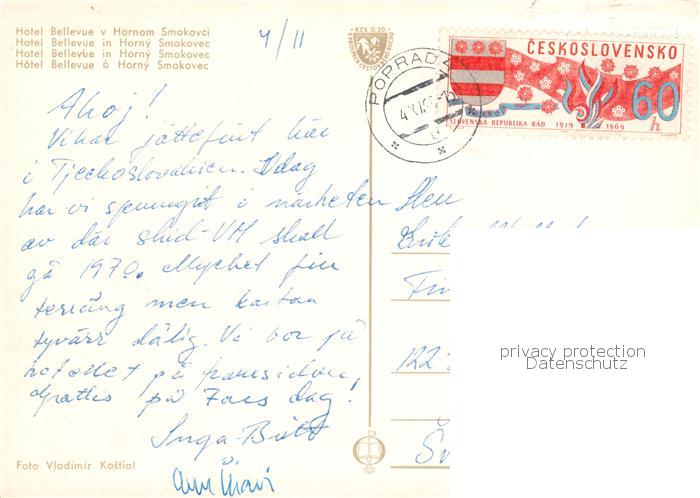 Hotel Bellevue v Hornom Smokovci
Hotel Bellevue in Horný Smokovec
Hotel Bellevue in Horný Smokovec
Hôtel Bellevue à Horný Smokovec
4/11
KČS 0,20
ČESKOSLOVENSKO
60 h
SLOVENSKÁ REPUBLIKA RÁD 1919 1969
POPRAD
Ahoj!
Vi har jättefint här
i Tjechoslovakien. Idag
har vi sprungit i närheten
av där skid-VM skall
gå 1970. Mycket fin
terräng men kartan
tyvärr dålig. Vi bor på
hotellet på framsidan,
Grattis på Fars dag!
Inga-Britt
Foto Vladimír Koštial
122
privacy protection
Datenschutz